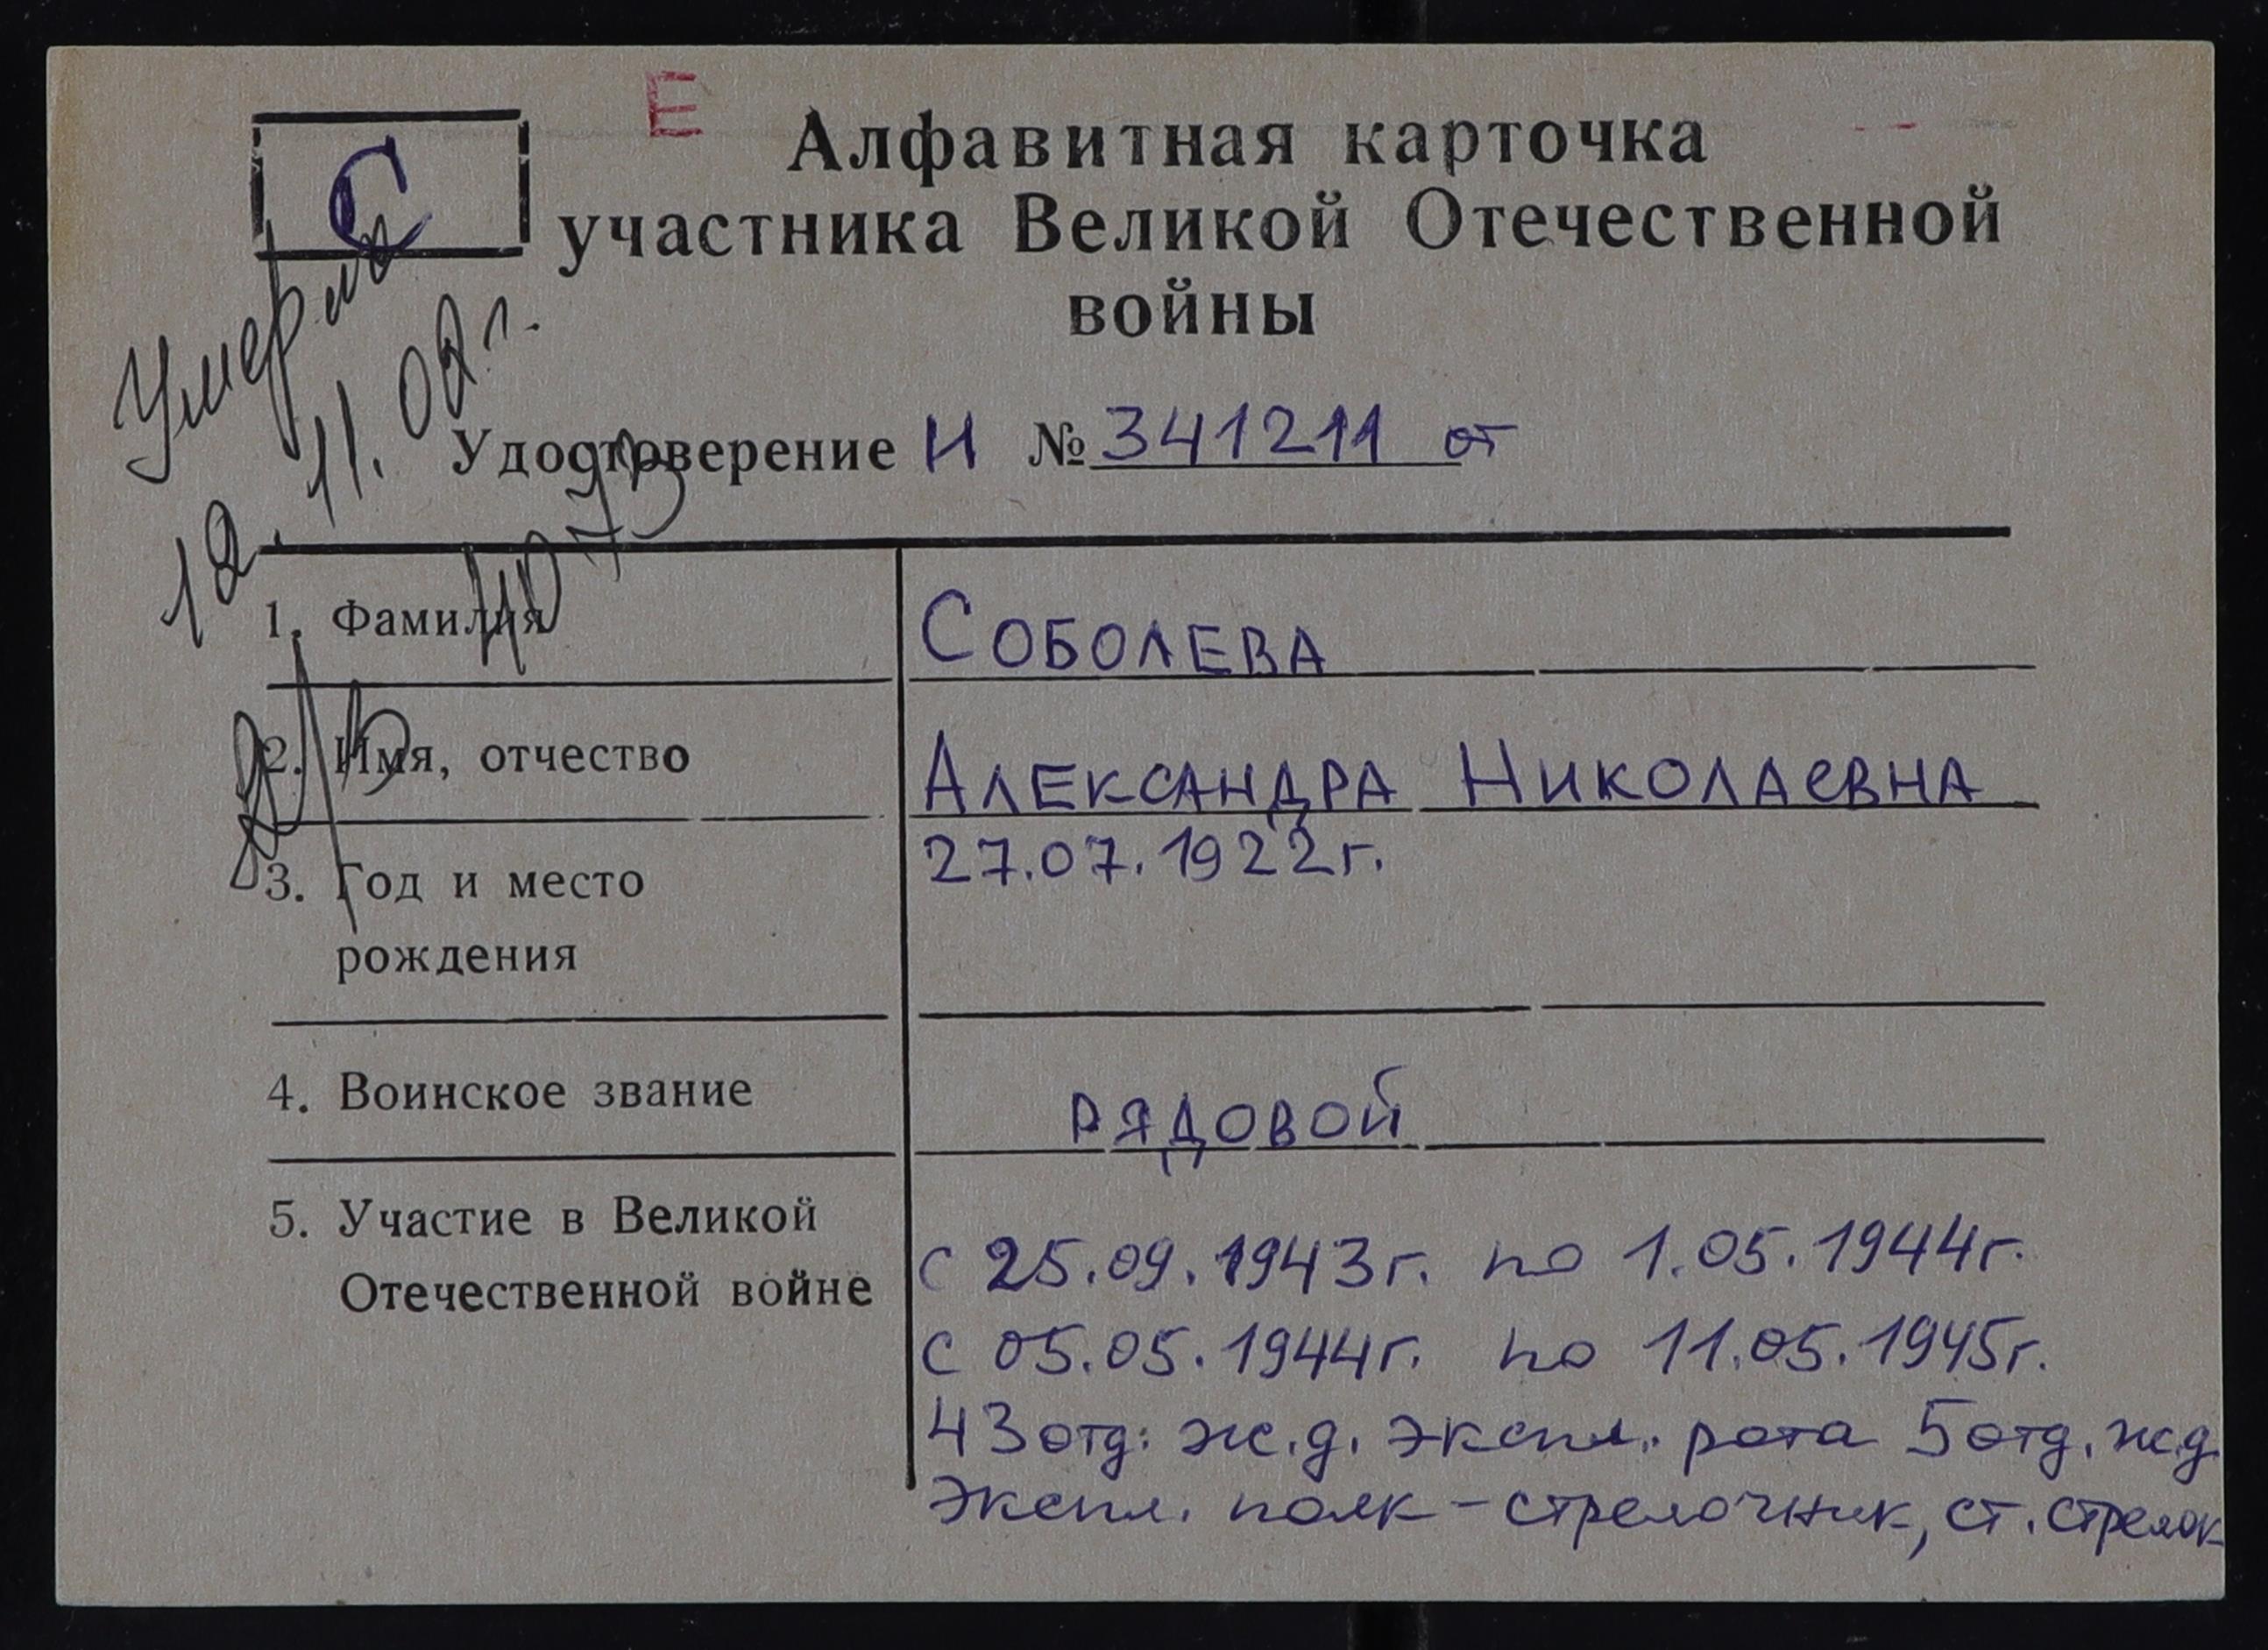 С
Е
Алфавитная карточка
участника Великой Отечественной
войны
Умерла
12.11.02г.
Удостоверение Н № 341211 от
1. Фамилия
СОБОЛЕВА
2. Имя, отчество
АЛЕКСАНДРА НИКОЛАЕВНА
3. Год и место
рождения
27.07.1922г.
4. Воинское звание
РЯДОВОЙ
5. Участие в Великой
Отечественной войне
с 25.09.1943г. по 1.05.1944г.
с 05.05.1944г. по 11.05.1945г.
43 отд. ж.д. экспл. рота 5 отд. ж.д.
экспл. полк - стрелочник, ст. стрелок